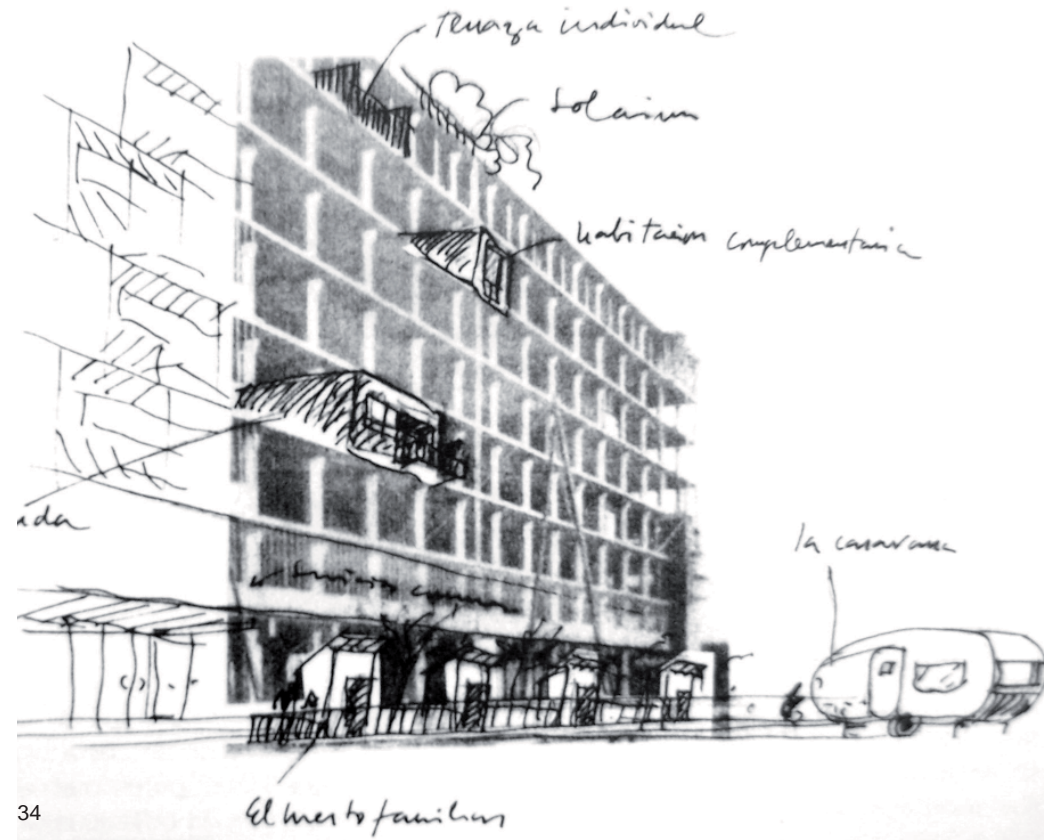 Terraza individual
Solarium
habitacion complementaria
la caravana
El huerto familiar
34